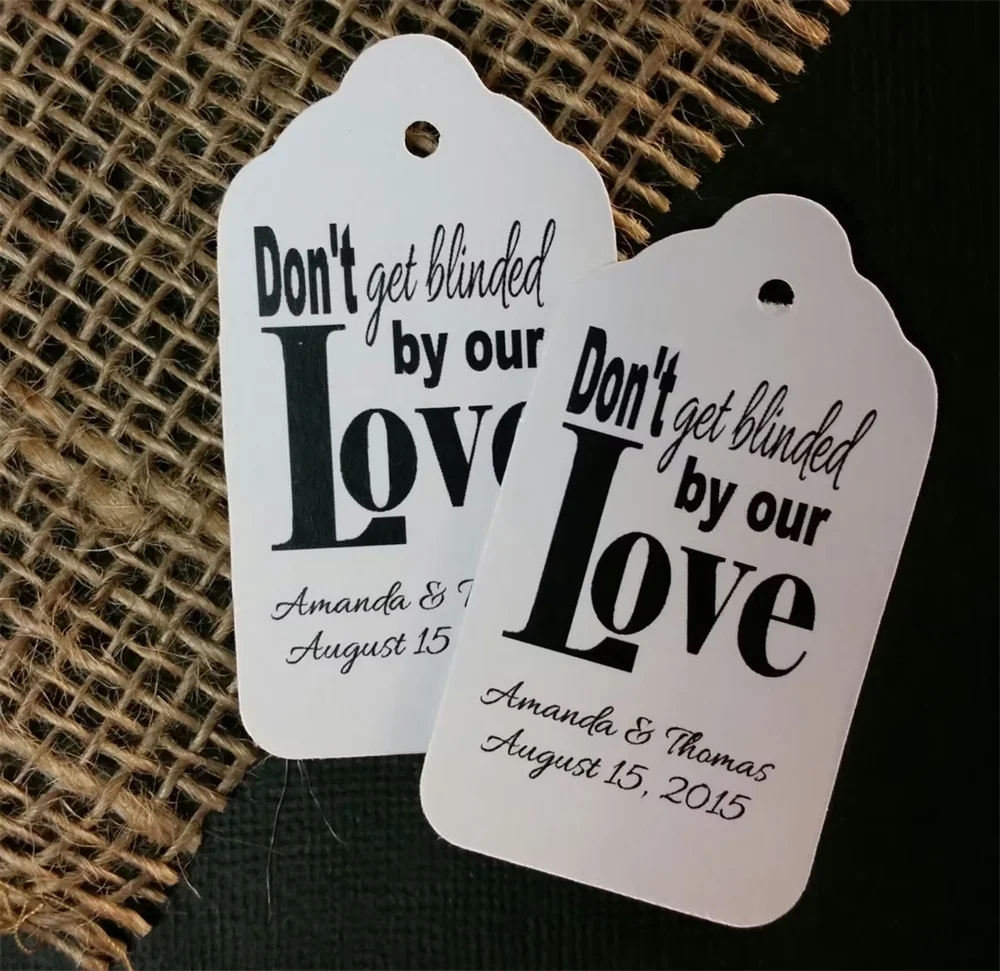 Don't get blinded
by our
Love
Amanda &
August 15
Don't get blinded
by our
Love
Amanda & Thomas
August 15, 2015